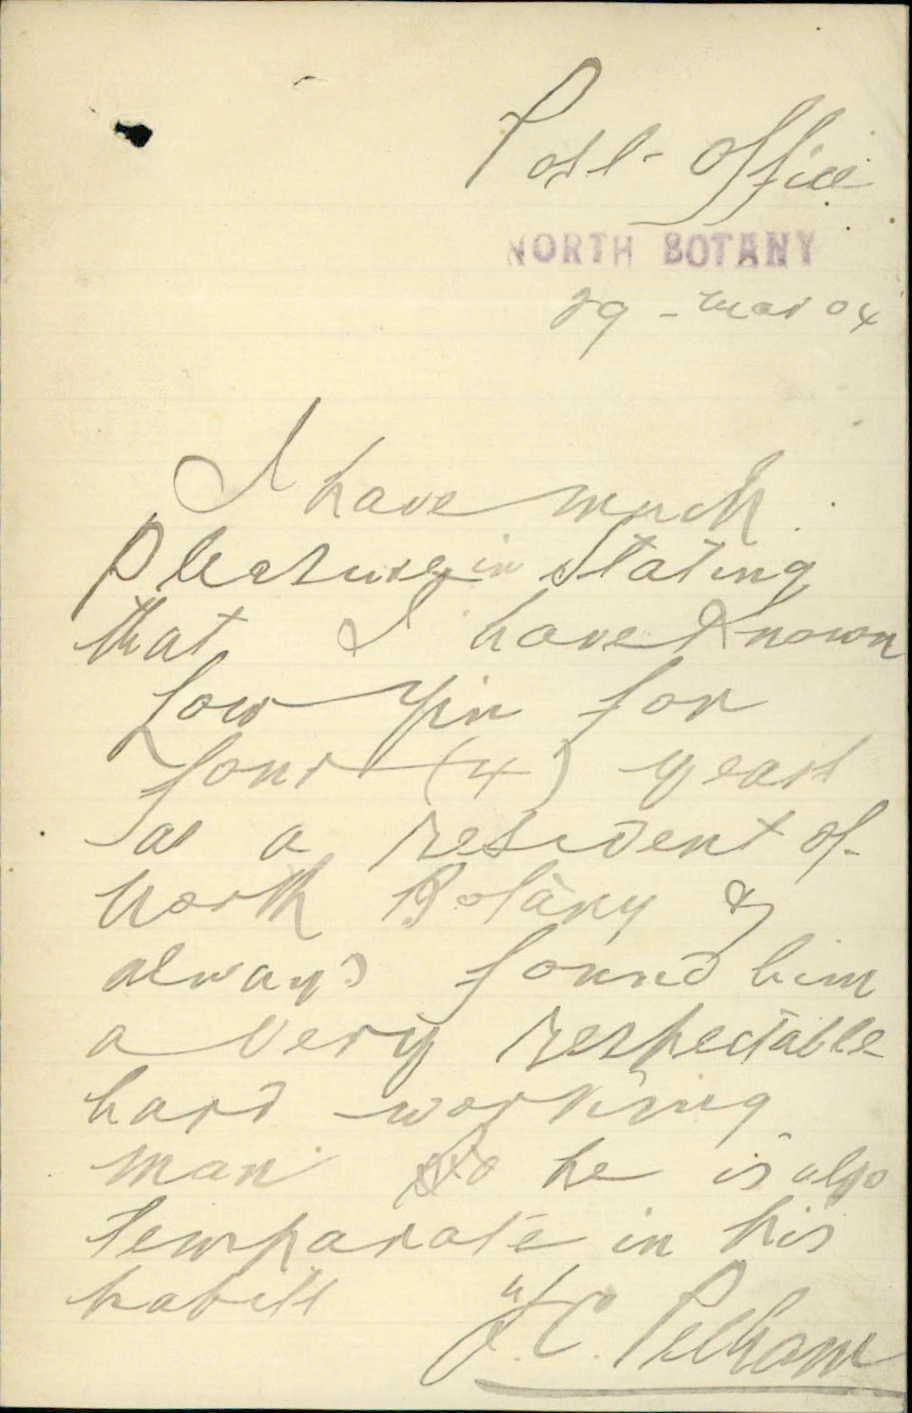 Post Office
NORTH BOTANY
29 - Mar 04
I have much
Pleasure in Stating
that I have Known
Low Yin for
four (4) years
as a resident of
North Botany &
always found him
a very respectable
hard working
man he is also
temparate in his
habits
J. C. Pelham